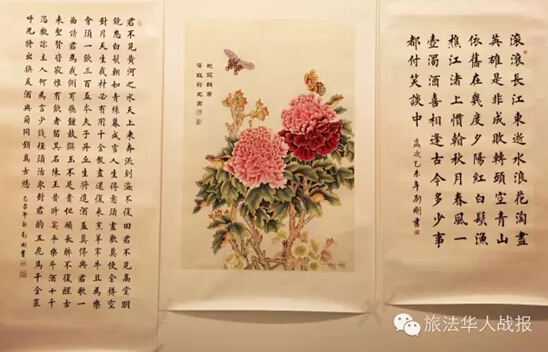 滾滾長江東逝水浪花淘盡
英雄是非成敗轉頭空青山
依舊在幾度夕陽紅白髮漁
樵江渚上慣看秋月春風一
壺濁酒喜相逢古今多少事
都付笑談中
歲次乙未年劉剛書
君不見黃河之水天上來奔流到海不復回君不見高堂明
鏡悲白髮朝如青絲暮成雪人生得意須盡歡莫使金樽空
對月天生我材必有用千金散盡還復來烹羊宰牛且為樂
會須一飲三百杯岑夫子丹丘生將進酒君莫停與君歌一
曲請君為我側耳聽鐘鼓饌玉不足貴但願長醉不復醒古
來聖賢皆寂寞惟有飲者留其名陳王昔時宴平樂斗酒十千
恣歡謔主人何為言少錢徑須沽取對君酌五花馬千金裘
呼兒將出換美酒與爾同銷萬古愁
旅法华人战报